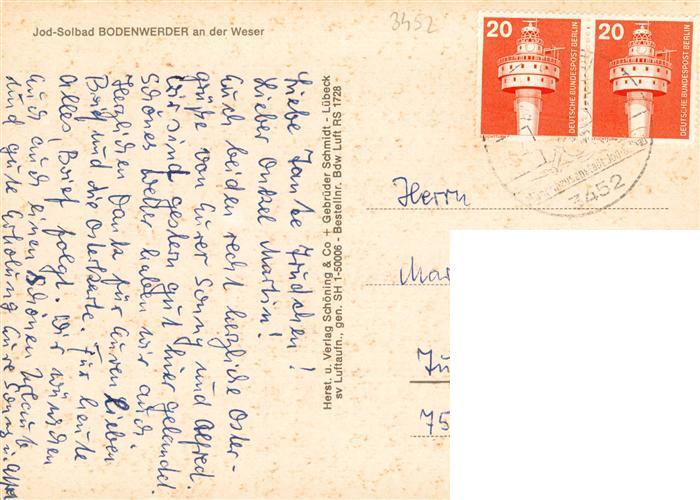 Jod-Solbad BODENWERDER an der Weser
3452
Liebe Tante Trudchen!
Lieber Onkel Martin!
Euch beiden recht herzliche Oster-
grüße von Eurer Sonny und Alfred.
Wir sind gestern gut hier gelandet.
Schönes Wetter haben wir auch
Herzlichen Dank für Euren lieben
Brief und die Osterkarte. Für heute
Alles, Brief folgt. Wir wünschen
Euch auch einen schönen Urlaub
und gute Erholung Eure Sonny u. Alfred
Herst. u. Verlag Schöning & Co + Gebrüder Schmidt - Lübeck
sv Luftaufn., gen. SH 1-50006 - Bestellnr. Bdw Luft RS 1728
20 DEUTSCHE BUNDESPOST BERLIN
20 DEUTSCHE BUNDESPOST BERLIN
3452
Herrn
Mar
75